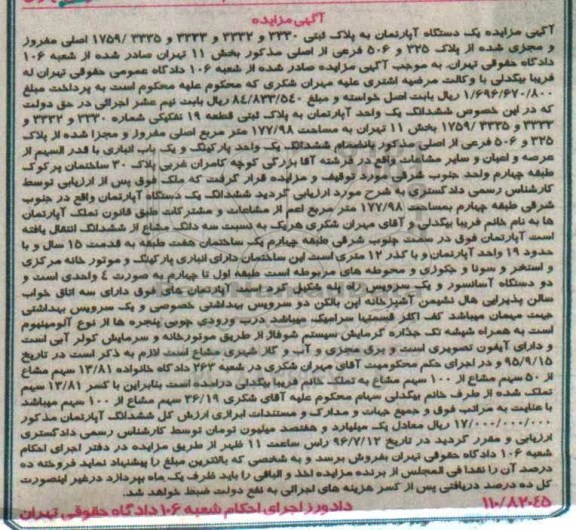 آگهی مزایده
آگهی مزایده یک دستگاه آپارتمان به پلاک ثبتی ۳۳۳۰ و ۳۳۳۲ و ۳۳۳۳ و ۳۳۳۵ /۱۷۵۹ اصلی مفروز
و مجزی شده از پلاک ۳۲۵ و ۵۰۶ فرعی از اصلی مذکور بخش ۱۱ تهران صادر شده از شعبه ۱۰۶
دادگاه حقوقی تهران. به موجب آگهی مزایده صادر شده از شعبه ۱۰۶ دادگاه عمومی حقوقی تهران له
فریبا بیگدلی با وکالت مرضیه اشتری علیه مهران شکری که محکوم علیه محکوم است به پرداخت مبلغ
۱/۶۹۶/۶۷۰/۸۰۰ ریال بابت اصل خواسته و مبلغ ۸۴/۸۳۳/۵۴۰ ریال بابت نیم عشر اجرائی در حق دولت
که در این خصوص ششدانگ یک واحد آپارتمان به پلاک ثبتی قطعه ۱۹ تفکیکی شماره ۳۳۳۰ و ۳۳۳۲ و
۳۳۳۳ و ۳۳۳۵ /۱۷۵۹ بخش ۱۱ تهران به مساحت ۱۷۷/۹۸ متر مربع اصلی مفروز و مجزا شده از پلاک
۳۲۵ و ۵۰۶ فرعی از اصلی مذکور بانضمام ششدانگ یک واحد پارکینگ و یک باب انباری با قدر السهم از
عرصه و اعیان و سایر مشاعات واقع در فرشته آقا بزرگی کوچه کامران غربی پلاک ۳۰ ساختمان پرکوک
طبقه چهارم واحد جنوب شرقی مورد توقیف و مزایده قرار گرفت که ملک فوق پس از ارزیابی توسط
کارشناس رسمی دادگستری به شرح مورد ارزیابی گردید ششدانگ یک دستگاه آپارتمان واقع در جنوب
شرقی طبقه چهارم بمساحت ۱۷۷/۹۸ متر مربع اعم از مشاعات و مشترکات طبق قانون تملک آپارتمان
ها به نام خانم فریبا بیگدلی و آقای مهران شکری هریک به نسبت سه دانگ مشاع از ششدانگ انتقال یافته
است آپارتمان فوق در سمت جنوب شرقی طبقه چهارم یک ساختمان هفت طبقه به قدمت ۱۵ سال و با
حدود ۱۹ واحد آپارتمان و با گذر ۱۲ متری است این ساختمان دارای انباری پارکینگ و موتور خانه مرکزی
و استخر و سونا و جکوزی و محوطه های مربوطه است طبقه اول تا چهارم به صورت ۴ واحدی است و
دو دستگاه آسانسور و یک سرویس پله به شکیل کرد است آپارتمان های فوق دارای سه اتاق خواب
سالن پذیرایی هال نشیمن آشپزخانه اپن بالکن دو سرویس بهداشتی خصوصی و یک سرویس بهداشتی
جهت میهمان میباشد کف اکثر قسمتها سرامیک میباشد درب ورودی چوبی پنجره ها از نوع آلومینیوم
است به همراه شیشه تک جداره گرمایش سیستم شوفاژ از طریق موتورخانه و سرمایش کولر آبی است
و دارای آیفون تصویری است و برق مجزی و آب و گاز شهری مشاع است لازم به ذکر است در تاریخ
۹۵/۹/۱۵ و در اجرای حکم محکومیت آقای مهران شکری در شعبه ۲۶۳ دادگاه خانواده ۱۳/۸۱ سهم مشاع
از ۵۰ سهم مشاع از ۱۰۰ سهم مشاع به تملک خانم فریبا بیگدلی درامده است بنابراین با کسر ۱۳/۸۱ سهم
تملک شده از طرف خانم بیگدلی سهام محکوم علیه آقای شکری ۳۶/۱۹ سهم مشاع از ۱۰۰ سهم میباشد
با عنایت به مراتب فوق و جمیع جهات و مدارک و مستندات ابرازی ارزش کل ششدانگ آپارتمان مذکور
۱۷/۰۰۰/۰۰۰/۰۰۰ ریال معادل یک میلیارد و هفتصد میلیون تومان توسط کارشناس رسمی دادگستری
ارزیابی و مقرر گردید در تاریخ ۹۶/۷/۱۲ راس ساعت ۱۱ ظهر از طریق مزایده در دفتر اجرای احکام
شعبه ۱۰۶ دادگاه حقوقی تهران بفروش برسد و به شخصی که بالاترین مبلغ را پیشنهاد نماید فروخته ده
درصد آن را نقدا فی المجلس از برنده مزایده اخذ و الباقی را باید ظرف یک ماه بپردازد درغیر اینصورت
کل ده درصد دریافتی پس از کسر هزینه های اجرائی به نفع دولت ضبط خواهد شد.
۱۱۰/۸۲۰۴۵ دادورز اجرای احکام شعبه ۱۰۶ دادگاه حقوقی تهران